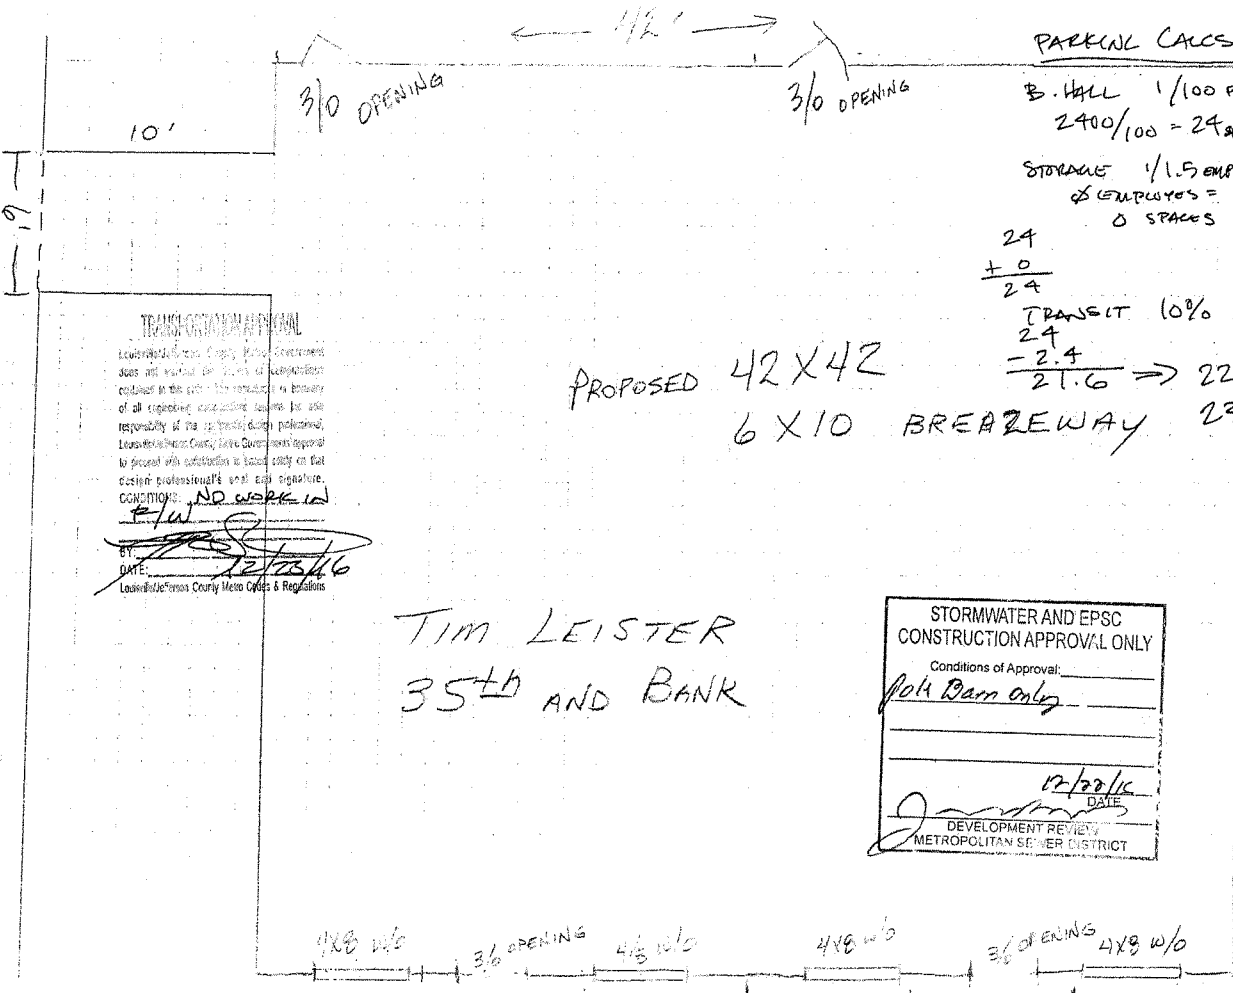 42'
PARKING CALCS
3/0 OPENING
3/0 OPENING
B. HALL 1/100
2400/100 = 24
10'
STORAGE 1/1.5 EMP
Ø EMPLOYES =
0 SPACES
24
+ 0
24
TRANSIT 10%
24
- 2.4
21.6 ⇒ 22
PROPOSED 42 X 42
6 X 10 BREAZEWAY
TRANSPORTATION APPROVAL
Louisville/Jefferson County Metro Government
does not
of all engineering
responsibility of the design professional,
Louisville/Jefferson County Metro Government approval
to proceed with construction is based solely on that
design professional's seal and signature.
CONDITIONS: NO WORK IN
R/W
BY:
DATE: 12/23/16
Louisville/Jefferson County Metro Codes & Regulations
TIM LEISTER
35th AND BANK
STORMWATER AND EPSC
CONSTRUCTION APPROVAL ONLY
Conditions of Approval:
Pole Barn only
12/22/16
DATE
DEVELOPMENT REVIEW
METROPOLITAN SEWER DISTRICT
4X8 w/o
3/6 OPENING
w/o
4X8 w/o
OPENING
4X8 w/o